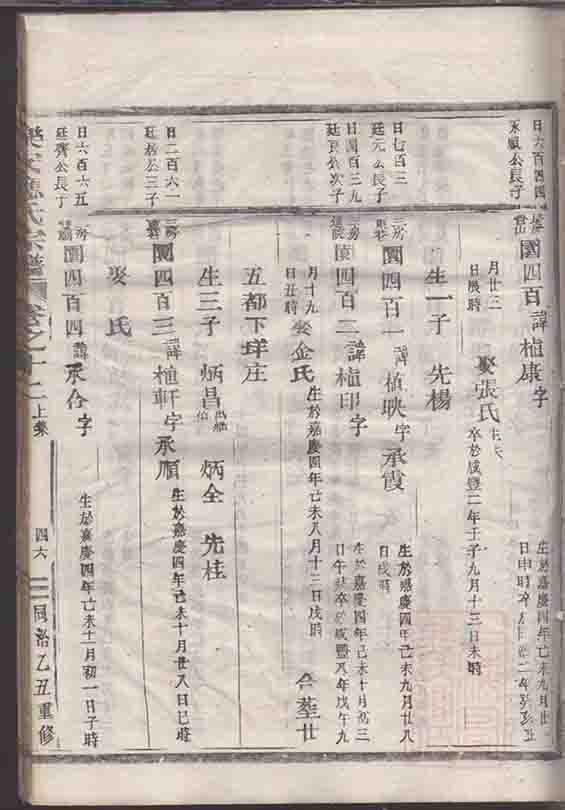 日六百四四
永順公長子
國四百諱植康字
生於嘉慶四年己未九月廿
月廿三
日辰時
娶張氏生失
卒於咸豐二年壬子九月十三日未時
生一子 先楊
日七百三
廷元公長子
三房
國四百一諱植映字承霞
生於嘉慶四年己未九月廿八
日戌時
日四百三九
廷良公次子
三房
國四百二諱植印字
生於嘉慶四年己未十月初三
日午時卒於咸豐八年戊午九
月十九
日丑時
娶金氏
生於嘉慶四年己未八月十三日戌時
合塟廿
五都下垟庄
生三子 炳昌出繼伯 炳全 先桂
日二百六一
廷松公三子
三房
國四百三諱植軒字承順
生於嘉慶四年己未十月廿八日巳時
娶 氏
日六百六五
廷齊公長子
國四百四諱承合字
生於嘉慶四年己未十一月初一日子時
氏宗譜 卷之十二上集 四六 同治乙丑重修